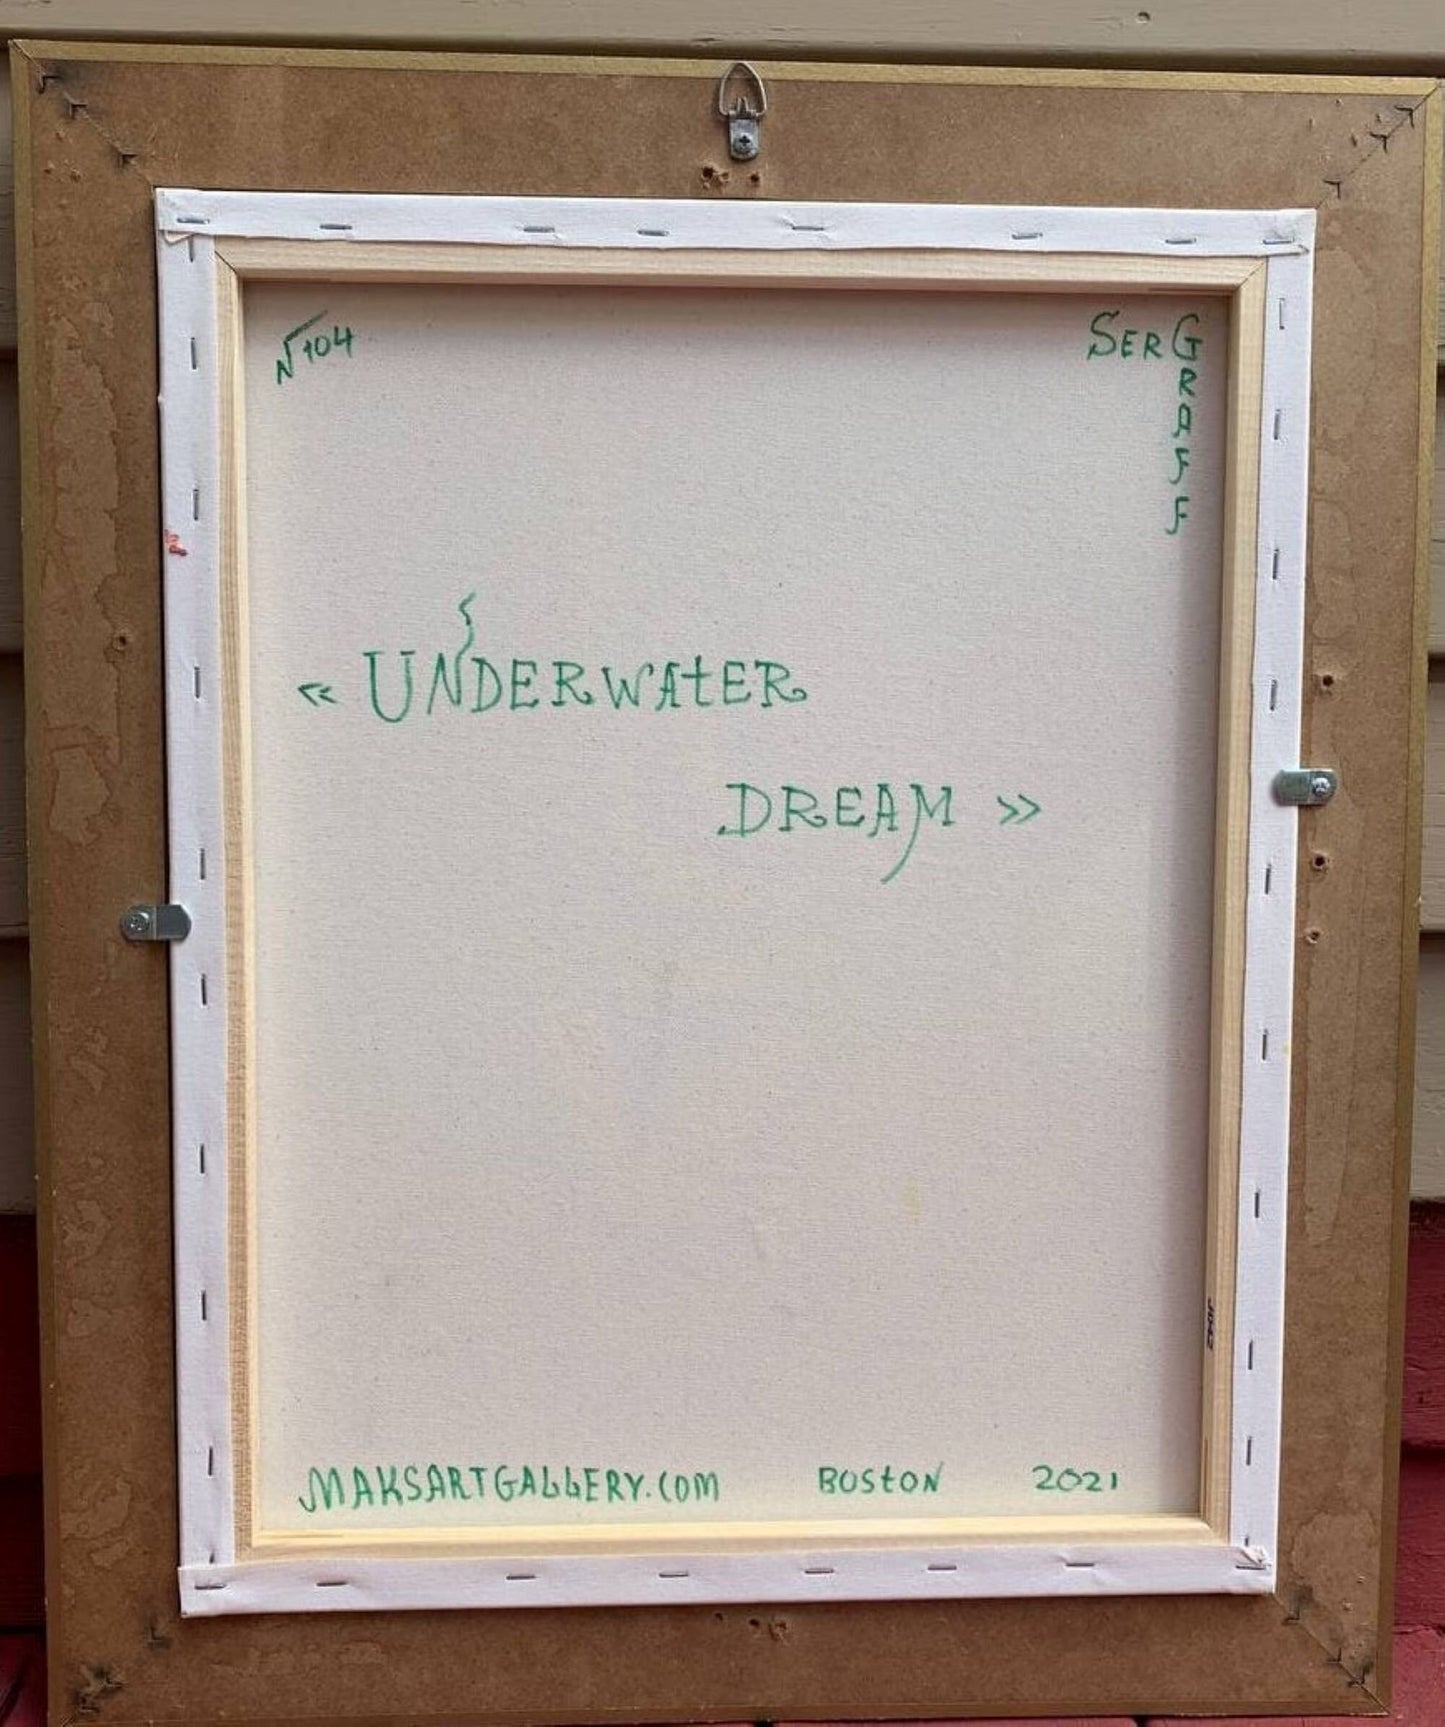 N104
SERGRAFF
« UNDERWAtER
DREAM »
MAKSARTGALLERY.COM BOStON 2021